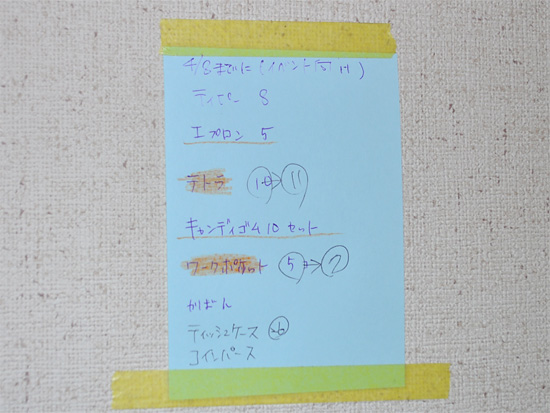 4/8までに(イベント15 11)
テイパー 8
エプロン 5
テトラ 10→11
キャンディゴム10セット
ワークポケット 5→7
かばん
ティッシュケース
コインパース